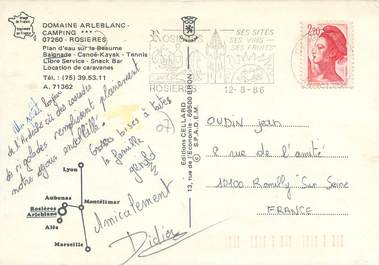 DOMAINE ARLEBLANC-
CAMPING ***
07260 - ROSIERES
Plan d'eau sur la Beaume
Baignade - Canoë-Kayak - Tennis
Libre Service - Snack Bar
Location de caravanes
Tél. : (75) 39.53.11
A. 71362
de l'Ardèche où des
de rigolades remplacent pleinement
notre
Gros bises à toutes
la famille
Amicalement
Didier
Lyon
Aubenas
Rosières
Arleblanc
Montélimar
Alès
Marseille
Editions CELLARD
13, rue de l'Economie - 69500 BRON
© S.P.A.D.E.M.
ROSIERES
SES SITES
SES VINS
SES FRUITS
12-8-86
2,20
OUDIN Jean
2 rue de l'amitié
10100 Romilly Sur Seine
FRANCE